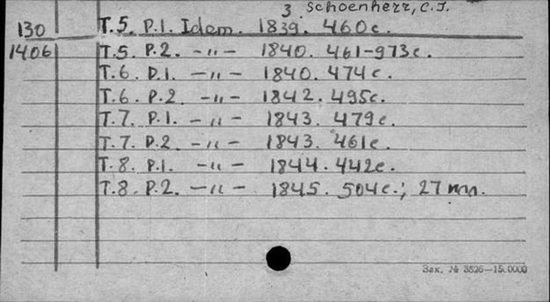 3 Schoenherr, C.J.
130 T.5. P.1. Idem. 1839. 460c.
1406 T.5. P.2. –„– 1840. 461-973c.
T.6. P.1. –„– 1840. 474c.
T.6. P.2. –„– 1842. 495c.
T.7. P.1. –„– 1843. 479c.
T.7. P.2. –„– 1843. 461c.
T.8. P.1. –„– 1844. 442c.
T.8. P.2. –„– 1845. 504c.; 27 пл.
Зак. № 3826—15.0000